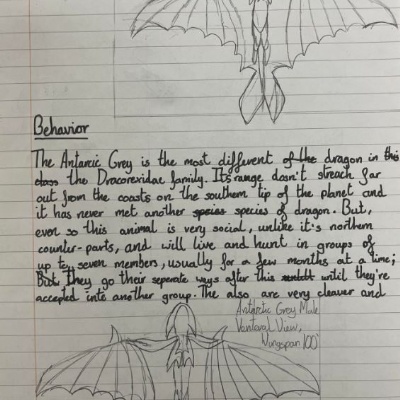 Behavior
The Antarcic Grey is the most different of the dragon in this
class the Dracorexidae family. Its range dosn't streach far
out from the coasts on the southern tip of the planet and
it has never met another species species of dragon. But,
even so this animal is very social, unlike it's northern
counter-parts, and will live and hunt in groups of
up to seven members, usually for a few months at a time;
But, they go their seperate ways after this until they're
accepted into another group. The also are very cleaver and
Antarctic Grey Male
View,
Wingspan 100